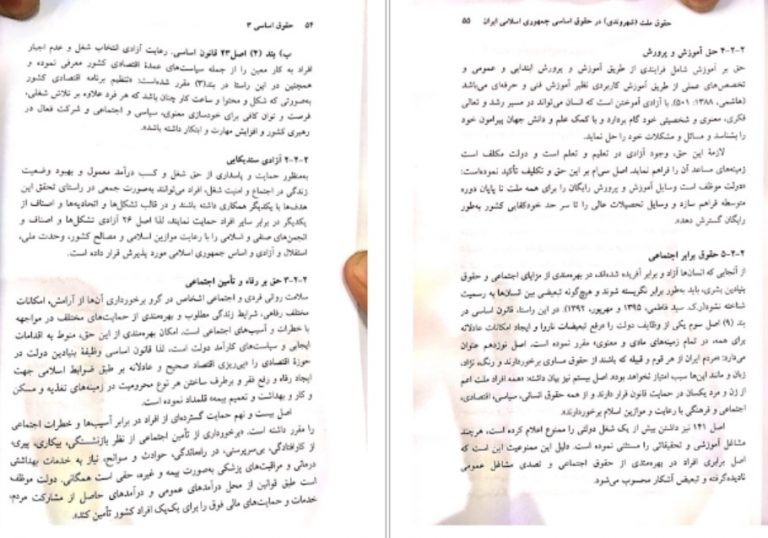 ۵۴ حقوق اساسی ۳
ب) بند (۴) اصل۲۳ قانون اساسی. رعایت آزادی انتخاب شغل و عدم اجبار
افراد به کار معین را از جمله سیاست‌های عمدهٔ اقتصادی کشور معرفی نموده و
همچنین در این راستا در بند(۳) مقرر شده‌است: «تنظیم برنامه اقتصادی کشور
به‌صورتی که شکل و محتوا و ساعت کار چنان باشد که هر فرد علاوه بر تلاش شغلی،
فرصت و توان کافی برای خودسازی معنوی، سیاسی و اجتماعی و شرکت فعال در
رهبری کشور و افزایش مهارت و ابتکار داشته باشد».
۲-۲-۴ آزادی سندیکایی
به‌منظور حمایت و پاسداری از حق شغل و کسب درآمد معمول و بهبود وضعیت
زندگی در اجتماع و امنیت شغل، افراد می‌توانند به‌صورت جمعی در راستای تحقق این
هدف‌ها با یکدیگر همکاری داشته باشند و در قالب تشکل‌ها و اتحادیه‌ها و اصناف از
یکدیگر در برابر سایر افراد حمایت نمایند، لذا اصل ۲۶ آزادی تشکل‌ها و اصناف و
انجمن‌های صنفی و اسلامی را با رعایت موازین اسلامی و مصالح کشور، وحدت ملی،
استقلال و آزادی و اساس جمهوری اسلامی مورد پذیرش قرار داده است.
۲-۲-۳ حق بر رفاه و تأمین اجتماعی
سلامت روانی فردی و اجتماعی اشخاص در گرو برخورداری آن‌ها از آرامش، امکانات
مختلف رفاهی، شرایط زندگی مطلوب و بهره‌مندی از حمایت‌های مختلف در مواجهه
با خطرات و آسیب‌های اجتماعی است. امکان بهره‌مندی از این حق، منوط به اقدامات
ایجابی و سیاست‌های کارآمد دولت است، لذا قانون اساسی وظیفهٔ بنیادین دولت در
حوزهٔ اقتصادی را «پی‌ریزی اقتصاد صحیح و عادلانه بر طبق ضوابط اسلامی جهت
ایجاد رفاه و رفع فقر و برطرف ساختن هر نوع محرومیت در زمینه‌های تغذیه و مسکن
و کار و بهداشت و تعمیم بیمه» قلمداد نموده است.
اصل بیست و نهم حمایت گسترده‌ای از افراد در برابر آسیب‌ها و خطرات اجتماعی
را مقرر داشته است. «برخورداری از تأمین اجتماعی از نظر بازنشستگی، بیکاری، پیری،
از کارافتادگی، بی‌سرپرستی، در راه‌ماندگی، حوادث و سوانح، نیاز به خدمات بهداشتی
درمانی و مراقبت‌های پزشکی به‌صورت بیمه و غیره، حقی است همگانی. دولت موظف
است طبق قوانین از محل درآمدهای عمومی و درآمدهای حاصل از مشارکت مردم،
خدمات و حمایت‌های مالی فوق را برای یک‌یک افراد کشور تأمین کند».
حقوق ملت (شهروندی) در حقوق اساسی جمهوری اسلامی ایران ۵۵
۲-۲-۴ حق آموزش و پرورش
حق بر آموزش شامل فرایندی از طریق آموزش و پرورش ابتدایی و عمومی و
تخصص‌های عملی از طریق آموزش کاربردی نظیر آموزش فنی و حرفه‌ای می‌باشد
(هاشمی، ۱۳۸۸: ۵۰۱). با آزادی آموختن است که انسان می‌تواند در مسیر رشد و تعالی
فکری، معنوی و شخصیتی خود گام بردارد و با کمک علم و دانش جهان پیرامون خود
را بشناسد و مسائل و مشکلات خود را حل نماید.
لازمهٔ این حق، وجود آزادی در تعلیم و تعلم است و دولت مکلف است
زمینه‌های مساعد آن را فراهم نماید. اصل سی‌ام بر این حق و تکلیف تأکید نموده‌است:
«دولت موظف است وسایل آموزش و پرورش رایگان را برای همه ملت تا پایان دوره
متوسطه فراهم سازد و وسایل تحصیلات عالی را تا سر حد خودکفایی کشور به‌طور
رایگان گسترش دهد».
۲-۲-۵ حقوق برابر اجتماعی
از آنجایی که انسان‌ها آزاد و برابر آفریده شده‌اند، در بهره‌مندی از مزایای اجتماعی و حقوق
بنیادین بشری، باید به‌طور برابر نگریسته شوند و هیچ‌گونه تبعیضی بین انسان‌ها به رسمیت
شناخته نشود(ر.ک. سید فاطمی، ۱۳۹۵ و مهرپور، ۱۳۹۲). در این راستا، قانون اساسی در
بند (۹) اصل سوم یکی از وظایف دولت را «رفع تبعیضات ناروا و ایجاد امکانات عادلانه
برای همه، در تمام زمینه‌های مادی و معنوی» مقرر نموده است. اصل نوزدهم عنوان
می‌دارد: «مردم ایران از هر قوم و قبیله که باشند از حقوق مساوی برخوردارند و رنگ، نژاد،
زبان و مانند این‌ها سبب امتیاز نخواهد بود». اصل بیستم نیز بیان داشته: «همه افراد ملت اعم
از زن و مرد یکسان در حمایت قانون قرار دارند و از همه حقوق انسانی، سیاسی، اقتصادی،
اجتماعی و فرهنگی با رعایت و موازین اسلام برخوردارند».
اصل ۱۴۱ نیز داشتن بیش از یک شغل دولتی را ممنوع اعلام کرده است، هرچند
مشاغل آموزشی و تحقیقاتی را مستثنی نموده است. دلیل این ممنوعیت این است که
اصل برابری افراد در بهره‌مندی از حقوق اجتماعی و تصدی مشاغل عمومی
نادیده‌گرفته و تبعیض آشکار محسوب می‌شود.